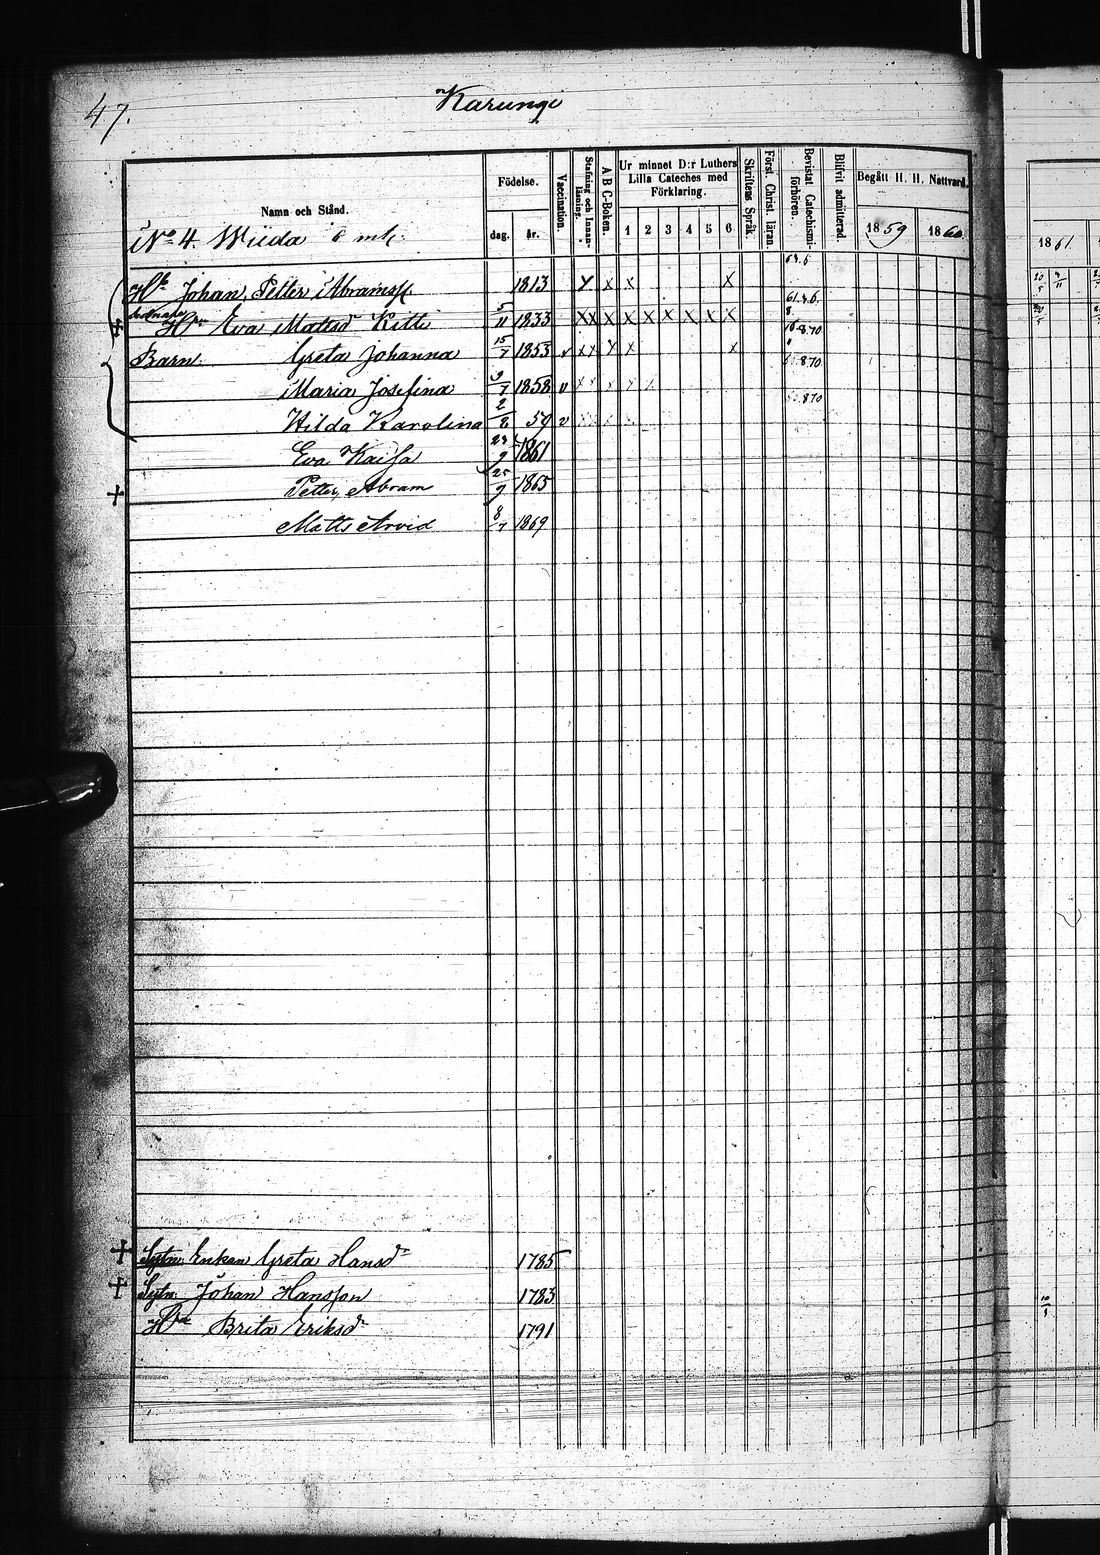 47.
Karungi
Namn och Stånd.
Födelse.
dag.
år.
Vaccination.
Stafning och Innanläsning.
A B C-Boken.
Ur minnet D:r Luthers Lilla Cateches med Förklaring.
1 2 3 4 5 6
Skriftens Språk.
Först. Christ. läran.
Bevistat Catechismi förhören.
Blifvit admitterad.
Begått H. H. Nattvard.
1859
1860
1861
No 4 Wiida 6 mtl.
Johan Petter Abramss. 1813
Eva Matsd Kitti 5/11 1833
Barn: Greta Johanna 15/7 1853 v
Maria Josefina 9/7 1858 v
Hilda Karolina 2/8 59 v
Eva Kaisa 1861
Petter Abram 25/9 1865
Matts Arvid 8/7 1869
Enkan Greta Hansd 1785
Sytn. Johan Hansson 1783
Brita Eriksd 1791